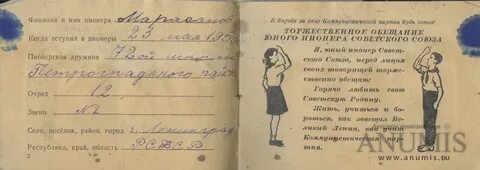 Фамилия и имя пионера
Когда вступил в пионеры 23 мая
Пионерская дружина 72ой школы
Петроградского
Отряд 12
Звено №2
Село, посёлок, район, город г. Ленинград
Республика, край, область РСФСР
2
К борьбе за дело Коммунистической партии будь готов!
ТОРЖЕСТВЕННОЕ ОБЕЩАНИЕ
ЮНОГО ПИОНЕРА СОВЕТСКОГО СОЮЗА
Я, юный пионер Совет-
ского Союза, перед лицом
своих товарищей торже-
ственно обещаю:
Горячо любить свою
Советскую Родину.
Жить, учиться и бо-
роться, как завещал Ве-
ликий Ленин, как учит
Коммунистическая пар-
тия.
ANUMIS
www.anumis.ru